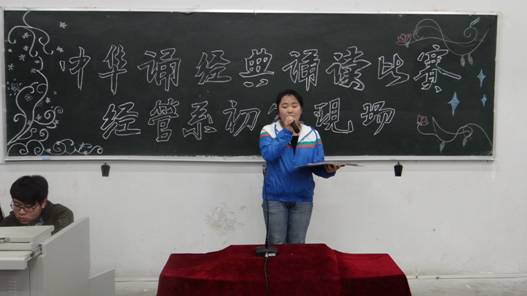 中华诵经典诵读比赛
经管系初赛现场